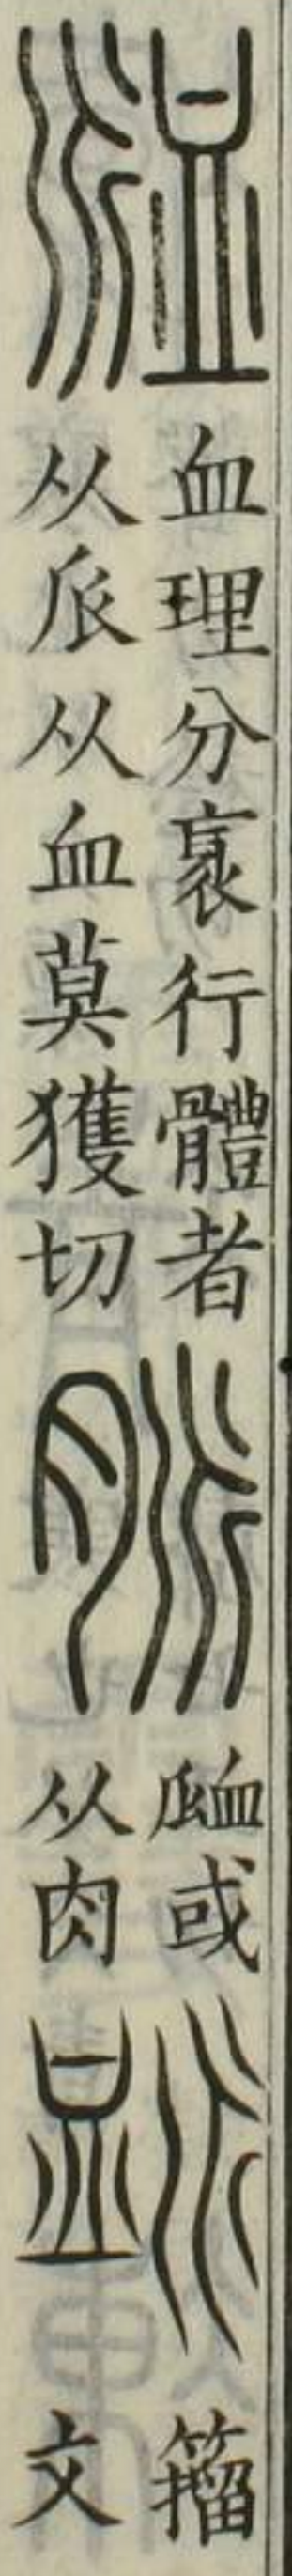 𧖴
血理分袤行體者
从𠂢从血莫獲切
脈
𧖴或
从肉
𧖴
籒
文